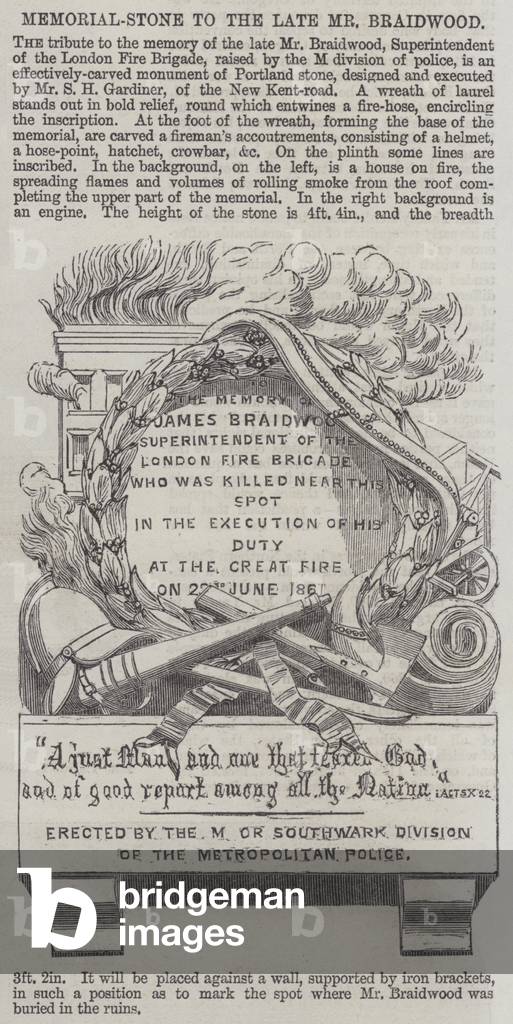 MEMORIAL-STONE TO THE LATE MR. BRAIDWOOD.
THE tribute to the memory of the late Mr. Braidwood, Superintendent
of the London Fire Brigade, raised by the M division of police, is an
effectively-carved monument of Portland stone, designed and executed
by Mr. S. H. Gardiner, of the New Kent-road. A wreath of laurel
stands out in bold relief, round which entwines a fire-hose, encircling
the inscription. At the foot of the wreath, forming the base of the
memorial, are carved a fireman's accoutrements, consisting of a helmet,
a hose-point, hatchet, crowbar, &c. On the plinth some lines are
inscribed. In the background, on the left, is a house on fire, the
spreading flames and volumes of rolling smoke from the roof com-
pleting the upper part of the memorial. In the right background is
an engine. The height of the stone is 4ft. 4in., and the breadth
TO
THE MEMORY OF
JAMES BRAIDWOO
SUPERINTENDENT OF THE
LONDON FIRE BRIGADE
WHO WAS KILLED NEAR THIS
SPOT
IN THE EXECUTION OF HIS
DUTY
AT THE GREAT FIRE
ON 22ND JUNE 1861
"A just Man and one that feared God,
and of good report among all the Nation." ACTS X 22
ERECTED BY THE M OR SOUTHWARK DIVISION
OF THE METROPOLITAN POLICE.
b bridgeman
images
3ft. 2in. It will be placed against a wall, supported by iron brackets,
in such a position as to mark the spot where Mr. Braidwood was
buried in the ruins.